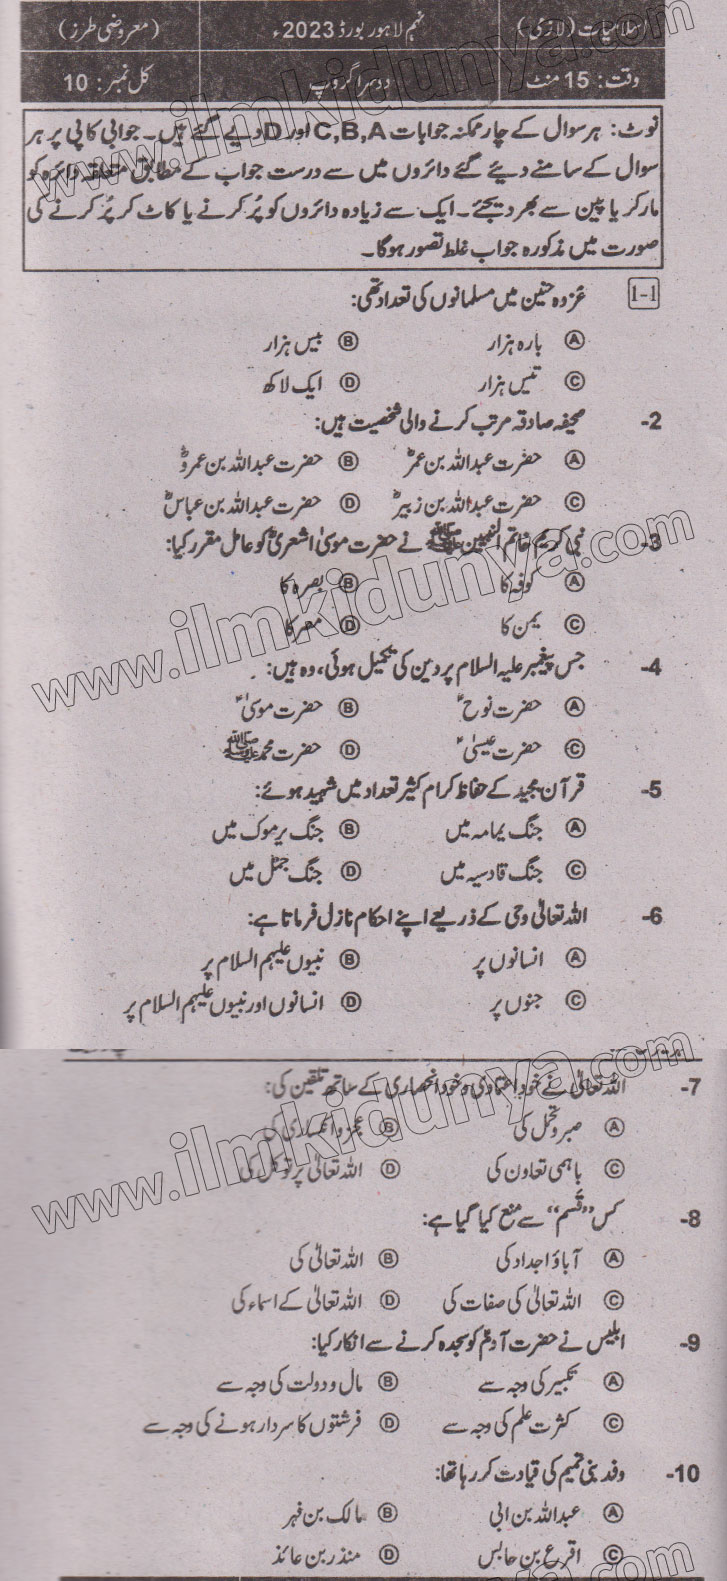 اسلامیات (لازمی) نہم لاہور بورڈ 2023ء (معروضی طرز)
وقت: 15 منٹ دوسرا گروپ کل نمبر: 10
نوٹ: ہر سوال کے چار ممکنہ جوابات C,B,A اور D دیے گئے ہیں۔ جوابی کاپی پر ہر
سوال کے سامنے دیئے گئے دائروں میں سے درست جواب کے مطابق متعلقہ دائرہ کو
مارکر یا پین سے بھر دیجئے۔ ایک سے زیادہ دائروں کو پُر کرنے یا کاٹ کر پُر کرنے کی
صورت میں مذکورہ جواب غلط تصور ہوگا۔
1-1 غزوہ حنین میں مسلمانوں کی تعداد تھی:
A بارہ ہزار B بیس ہزار
C تیس ہزار D ایک لاکھ
2- صحیفہ صادقہ مرتب کرنے والی شخصیت ہیں:
A حضرت عبداللہ بن عمرؓ B حضرت عبداللہ بن عمروؓ
C حضرت عبداللہ بن زبیرؓ D حضرت عبداللہ بن عباسؓ
3- نبی کریم خاتم النبیین ﷺ نے حضرت موسیٰ اشعریؓ کو عامل مقرر کیا:
A کوفہ کا B بصرہ کا
C یمن کا D مصر کا
4- جس پیغمبر علیہ السلام پر دین کی تکمیل ہوئی، وہ ہیں:
A حضرت نوحؑ B حضرت موسیٰؑ
C حضرت عیسیٰؑ D حضرت محمد ﷺ
5- قرآن مجید کے حفاظ کرام کثیر تعداد میں شہید ہوئے:
A جنگ یمامہ میں B جنگ یرموک میں
C جنگ قادسیہ میں D جنگ جمل میں
6- اللہ تعالیٰ وحی کے ذریعے اپنے احکام نازل فرماتا ہے:
A انسانوں پر B نبیوں علیہم السلام پر
C جنوں پر D انسانوں اور نبیوں علیہم السلام پر
7- اللہ تعالیٰ نے خود اعتمادی و خود انحصاری کے ساتھ تلقین کی:
A صبر و تحمل کی B عجز و انکساری کی
C باہمی تعاون کی D اللہ تعالیٰ پر توکل کی
8- کس ”قَسم“ سے منع کیا گیا ہے:
A آباؤ اجداد کی B اللہ تعالیٰ کی
C اللہ تعالیٰ کی صفات کی D اللہ تعالیٰ کے اسماء کی
9- ابلیس نے حضرت آدمؑ کو سجدہ کرنے سے انکار کیا:
A تکبیر کی وجہ سے B مال و دولت کی وجہ سے
C کثرت علم کی وجہ سے D فرشتوں کا سردار ہونے کی وجہ سے
10- وفد بنی تمیم کی قیادت کر رہا تھا:
A عبداللہ بن ابی B مالک بن فہر
C اقرع بن حابس D منذر بن عائذ
www.ilmkidunya.com
www.ilmkidunya.com
www.ilmkidunya.com